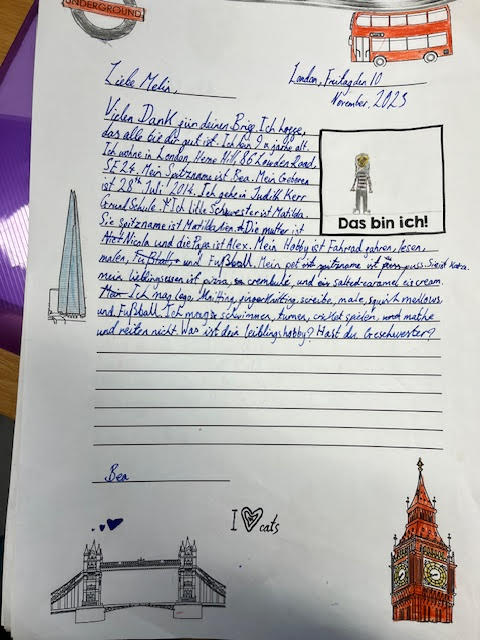 UNDERGROUND
Liebe Melin,
London, Freitag den 10
November, 2023
Vielen Dank für deinen Brig. Ich hogge,
das alle bie dir gut ist. Ich bin 9 n jahre alt.
Ich wohne in London, Herne Hill, 86
SE24. Mein Spitzname ist Bea. Mein Geboren
ist 28th Juli 2014. Ich gehe in Judith Kerr
Grundschule. Ich little Schwester ist Matilda.
Sie spitzname ist Die mutter ist
Nicola und die Papa ist Alex. Mein Hobby ist Fahrrad gahren, lesen,
malen, und Fußball. Mein pet spitzname ist puss. Sie ist Katze.
mein lieblingsessen ist pizza, crembule, und salted-caramel eiscream.
Ich mag lego, knitting, fingerknitting, screibe, male, squish mellows,
und Fußball. Ich mag schwimmen, turnen, cricket spielen, und mathe
und reiten nicht. Was ist dein leiblingshobby? Hast du Geschwester?
Das bin ich!
Bea
I cats